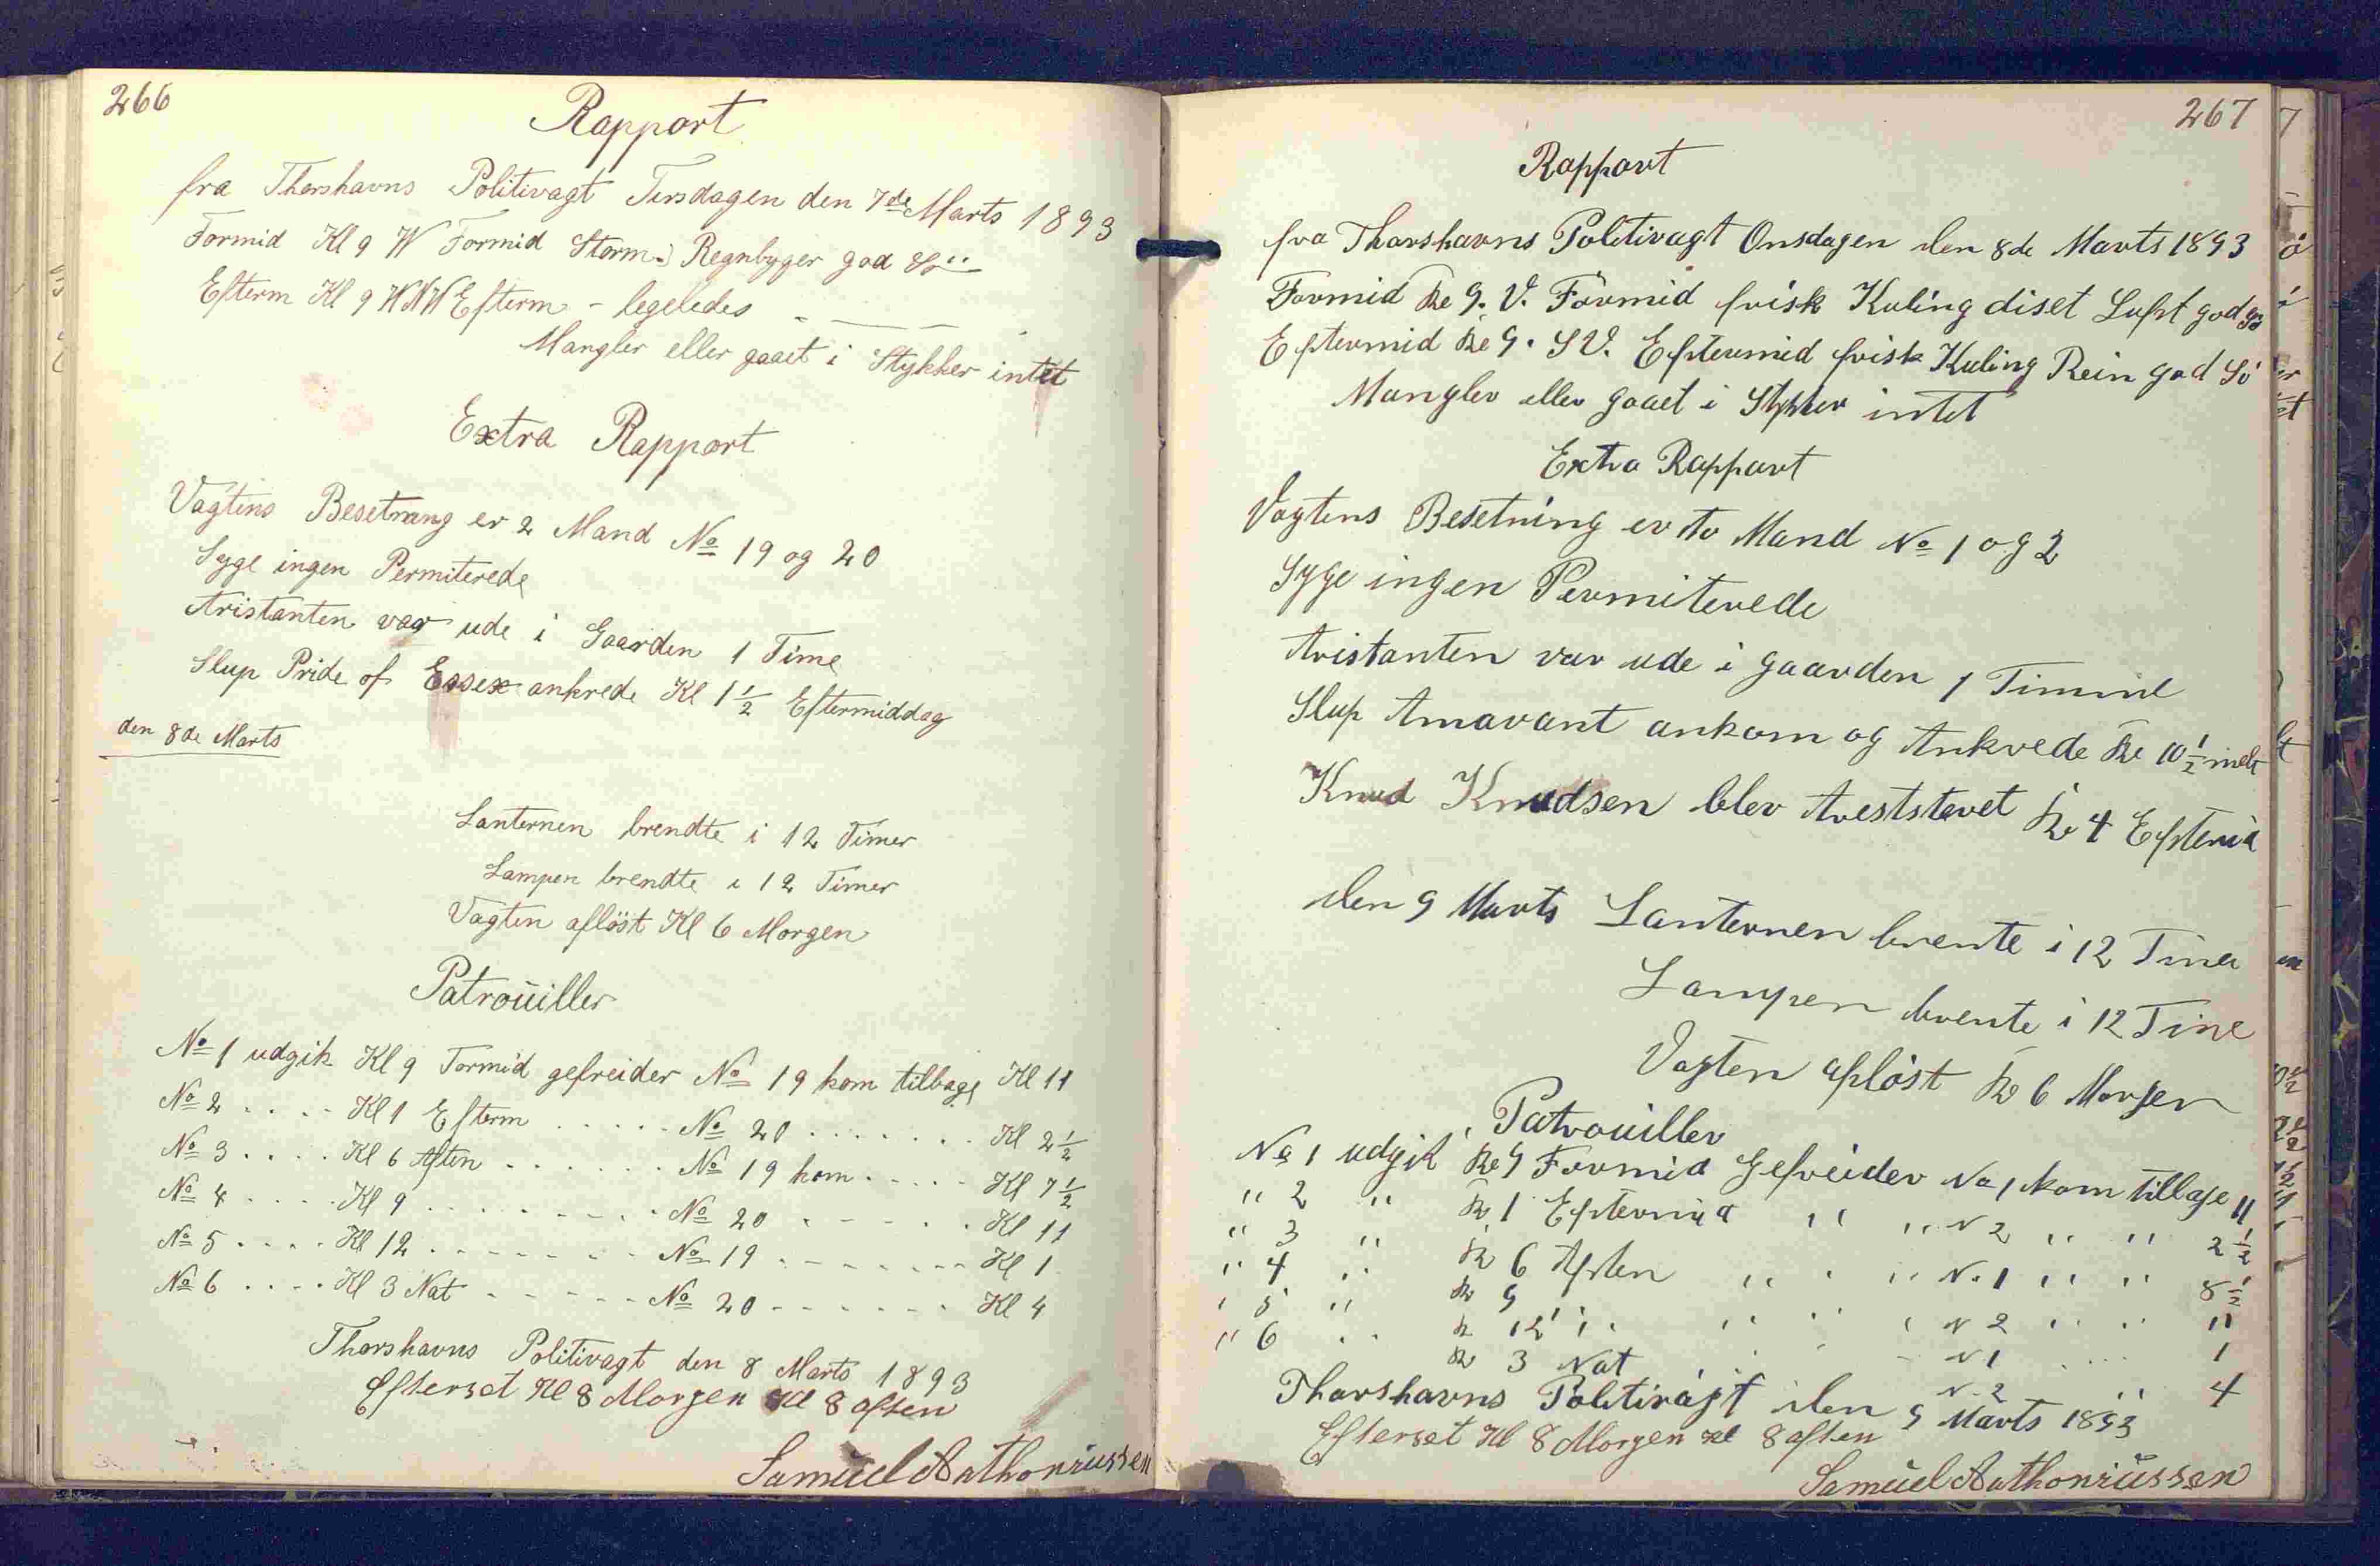 266
Rapport
fra Thorshavns Politivagt Tirsdagen den 7de Marts 1893
Formid Kl 9 W Formid Storm Regnbyger god
Efterm Kl 9 WNW Efterm - legeledes
Mangler eller gaaet i Stykker intet
Extra Rapport
Vagtens Besetning er 2 Mand No 19 og 20
Syge ingen Permiterede
Aristanten var ude i Gaarden 1 Time
Slup Pride of Essex ankrede Kl 1 1/2 Eftermiddag
den 8de Marts
Lanternen brendte i 12 Timer
Lampen brendte i 12 Timer
Vagten aflöst Kl 6 Morgen
Patrouiller
No 1 udgik Kl 9 Formid gefreider No 19 kom tilbage Kl 11
No 2 .... Kl 1 Efterm ..... No 20 ....... Kl 2 1/2
No 3 .... Kl 6 Aften ...... No 19 kom ..... Kl 7 1/2
No 4 .... Kl 9 ........ No 20 ...... Kl 11
No 5 .... Kl 12 ....... No 19 ....... Kl 1
No 6 .... Kl 3 Nat ...... No 20 ....... Kl 4
Thorshavns Politivagt den 8 Marts 1893
Efterset Kl 8 Morgen Kl 8 aften
Samuel Anthoniussen
267
Rapport
fra Thorshavns Politivagt Onsdagen den 8de Marts 1893
Formid Kl 9. V. Formid frisk Kuling diset Luft god
Eftermid Kl 9. SV. Eftermid frisk Kuling Rein god Sö
Mangler eller gaaet i Stykker intet
Extra Rapport
Vagtens Besetning er to Mand No 1 og 2
Syge ingen Permiterede
Aristanten var ude i gaarden 1 Timme
Slup Amavant ankom og Ankrede Kl 10 1/2
Knud Knudsen blev Areststeret Kl 4 Eftermid
den 9 Marts Lanternen brente i 12 Time
Lampen brente i 12 Time
Vagten aflöst Kl 6 Morgen
Patrouiller
No 1 udgik Kl 9 Formid Gefreider No 1 kom tilbage 11
" 2 " Kl 1 Eftermid " " N 2 " " 2 1/2
" 3 " Kl 6 Aften " " N. 1 " " 8 1/2
" 4 " Kl 9 " " N 2 " " 11
" 5 " Kl 12 " " N 1 " " 1
" 6 " Kl 3 Nat N. 2 " 4
Thorshavns Politivagt den 9 Marts 1893
Efterset Kl 8 Morgen Kl 8 aften
Samuel Anthoniussen